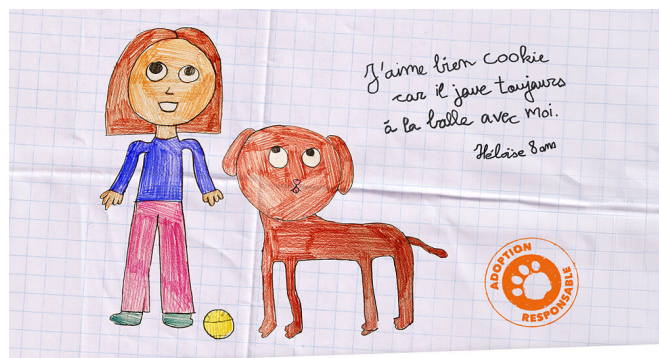 J'aime bien cookie
car il joue toujours
à la balle avec moi.
Héloïse 8 ans
ADOPTION
RESPONSABLE